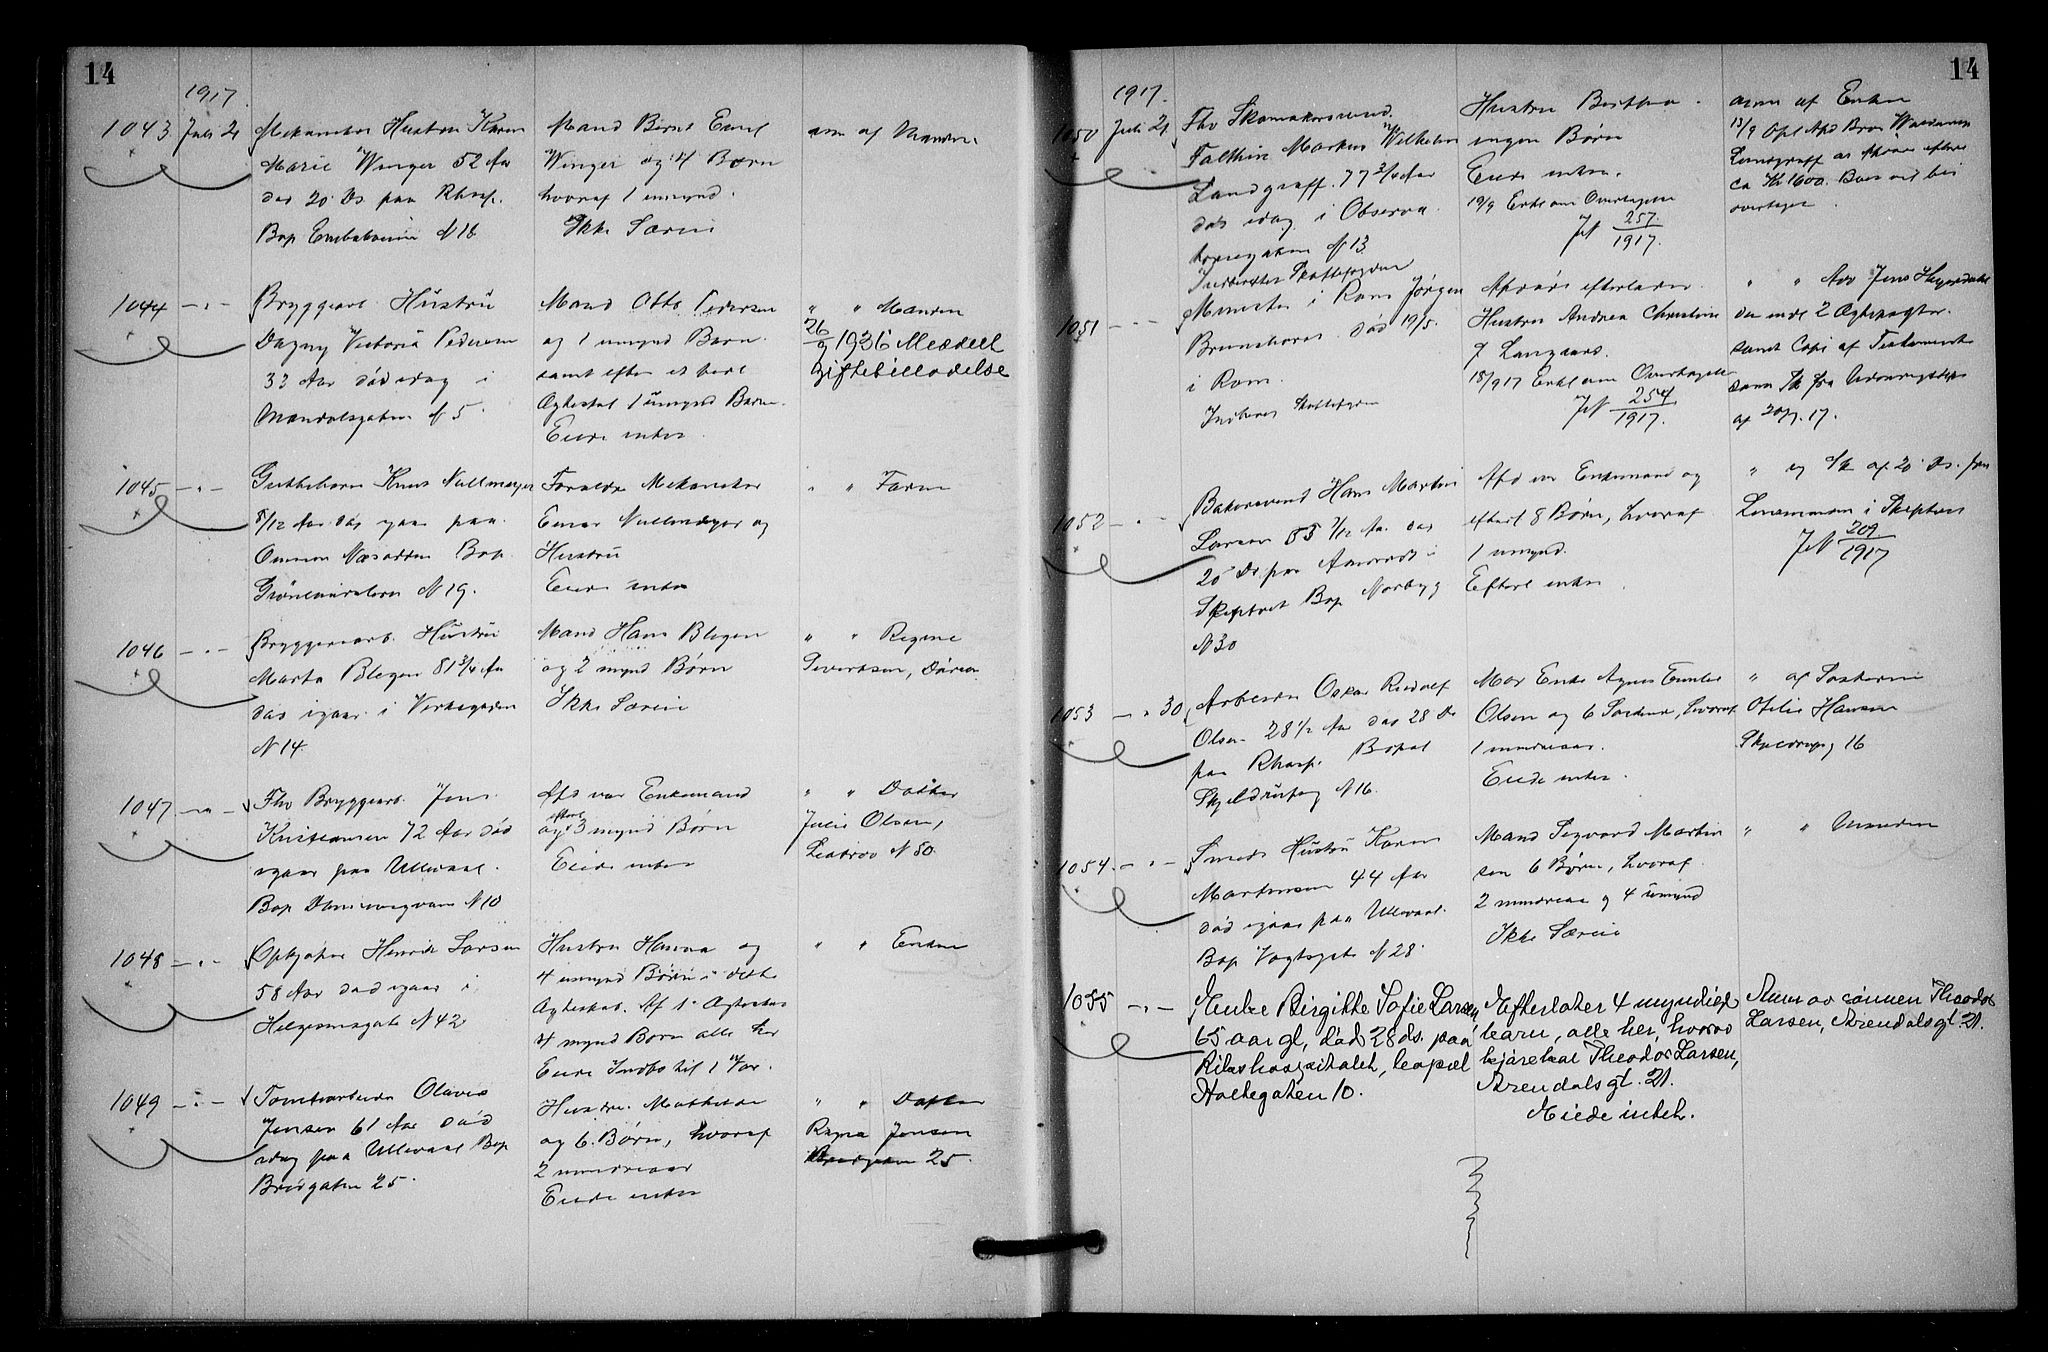 14
1917.
1043 Juli 21 Mekaniker Hustru Karen
Marie Winger 52 Aar
død 20 Ds paa Rhosp.
Bop N 16
Mand Bernt Emil
Winger og 4 Børn
hvoraf 1 umynd.
Ikke Særeie
anm af Manden.
1044 — " — Bryggearb. Hustru
Dagny Victoria Pedersen
33 Aar død idag i
Mandalsgaten N 5
Mand Otto Pedersen
og 1 umynd Barn.
samt efter et tidl
Ægteskab 1 umynd Barn.
Eiede intet.
" " Manden
26/9 1936 Meddelt
giftebilladelse
1045 — " — Guttebarn Knut Nullmeyer
8/12 Aar død igaar paa
Næsodden Bop
N 19.
Forældre Mekaniker
Einar Nullmeyer og
Hustru
Eiede intet
" " Faren
1046 — " — Bryggeriarb. Hustru
Marta Blegen 81 3/4 Aar
død igaar i Verksgaden
N 14
Mand Hans Blegen
og 2 mynd Børn
Ikke Særeie
" " Regine
Sivertsen,
1047 — " — Fhv Bryggearb. Jens
Kristiansen 72 Aar død
igaar paa Ullevaal.
Bop N 10
Afd var Enkemand
og efterl 3 mynd Børn
Eiede intet
" " Datter
Julie Olsen,
N 50.
1048 — " — Henrik Larsen
58 Aar død igaar i
Helgesensgate N 42
Hustru Hanna og
4 umynd Børn i dette
Ægteskab. Af 1' Ægteskab
4 mynd Børn alle her
Eiede Indbo til
" " Enken
1049 — " — Tomtearbeider Olaves
Jensen 61 Aar død
idag paa Ullevaal Bop
Bredgaten 25.
Hustru Mathilde
og 6 Børn, hvoraf
2 mindreaar
Eiede intet
" " Datter
Ragna Jensen
Bredgaten 25.
14
1917.
1050 Juli 21 Fhv Skomakersvend
Falthin Markus Wilhelm
Landgraff. 77 3/4 Aar
død idag i Observa
toriegaten N 13
Indberettet Skattefogden
Hustru Berthea
ingen Børn
Eiede intet.
19/9 Erkl om Overtagelse
JN 257/1917.
anm af Enken
13/9 Opl Afd Bror
Landgraff at Afdøde efterl
ca Kr 1600. Boet vil bli
overtaget.
1051 — " — Minister i Rom Jørgen
Brunchorst død 19/5.
i Rom.
Indberet Skattefogden
Afdøde efterlader
Hustru Andrea Christine
f Langaard.
18/9 17 Erkl om Overtagelse
JN 254/1917.
" " Adv Jens
der indl 2 Ægtepagter
samt Copi af Testamente
samt Sk fra
af 20/7. 17.
1052 — " — Bakersvend Hans Martin
Larsen 55 7/12 Aar død
20 Ds paa
Skeptvet Bop Norbyg
N 30
Afd var Enkemand og
efterl 8 Børn, hvoraf
1 umynd.
Efterl intet
" og Sk af 20 Ds. fra
Lensmannen i Skeptvet
JN 209/1917
1053 — " 30 Arbeider Oskar Rudolf
Olsen 28 1/2 Aar død 28 Ds
paa Rhosp. Bopæl
Skjeldrupsg N 16.
Mor Enke Agnes Emilie
Olsen og 6 Søskende, hvoraf
1 mindreaar.
Eiede intet.
" af Søsteren
Otilie Hansen
Skjeldrupsg 16
1054 — " — Smeds Hustru Karen
Martinsen 44 Aar
død igaar paa Ullevaal.
Bop Vogtsgate N 28
Mand Sigvard Martin
sen 6 Børn, hvoraf
2 mindreaar og 4 umynd
Ikke Særeie
" " Manden
1055 — " — Enke Birgitte Sofie Larsen,
65 aar gl, død 28 ds. paa
Rikshospitalet, bopæl
Holtegaten 10.
Efterlater 4 myndige
barn, alle her, hvorav
kjørekar Theodor Larsen,
Arendalsgt. 21.
Eiede intet.
Anm av sønnen Theodor
Larsen, Arendalsgt. 21.